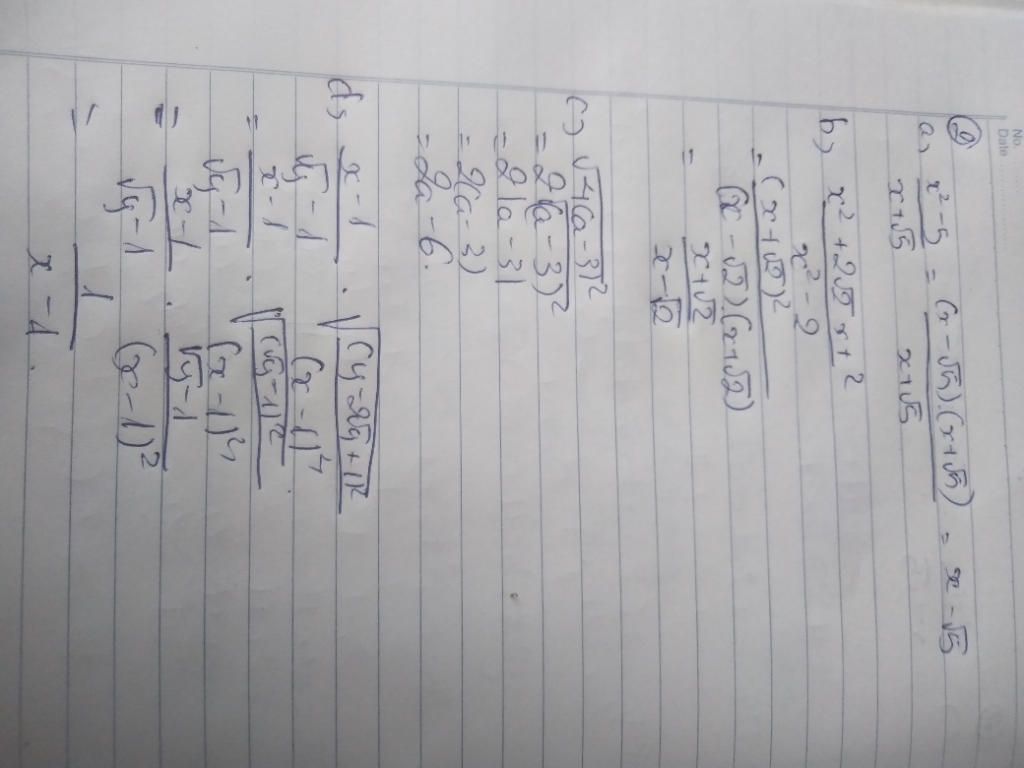 No.
Date
⑥
a, (x² - 5)/(x+√5) = ((x - √5).(x+√5))/(x+√5) = x - √5
b, (x² + 2√2 x + 2)/(x² - 2)
= (x+√2)²/((x - √2)(x+√2))
= (x+√2)/(x-√2)
c, √(4(a - 3)²)
= 2√(a - 3)²
= 2|a - 3|
= 2(a - 3)
= 2a - 6.
d, (x - 1)/(√y - 1) . √((y - 2√y + 1)²/(x - 1)⁴)
= (x - 1)/(√y - 1) . √((√y - 1)²/(x - 1)⁴)
= (x - 1)/(√y - 1) . (√y - 1)/(x - 1)²
= 1/(x - 1).